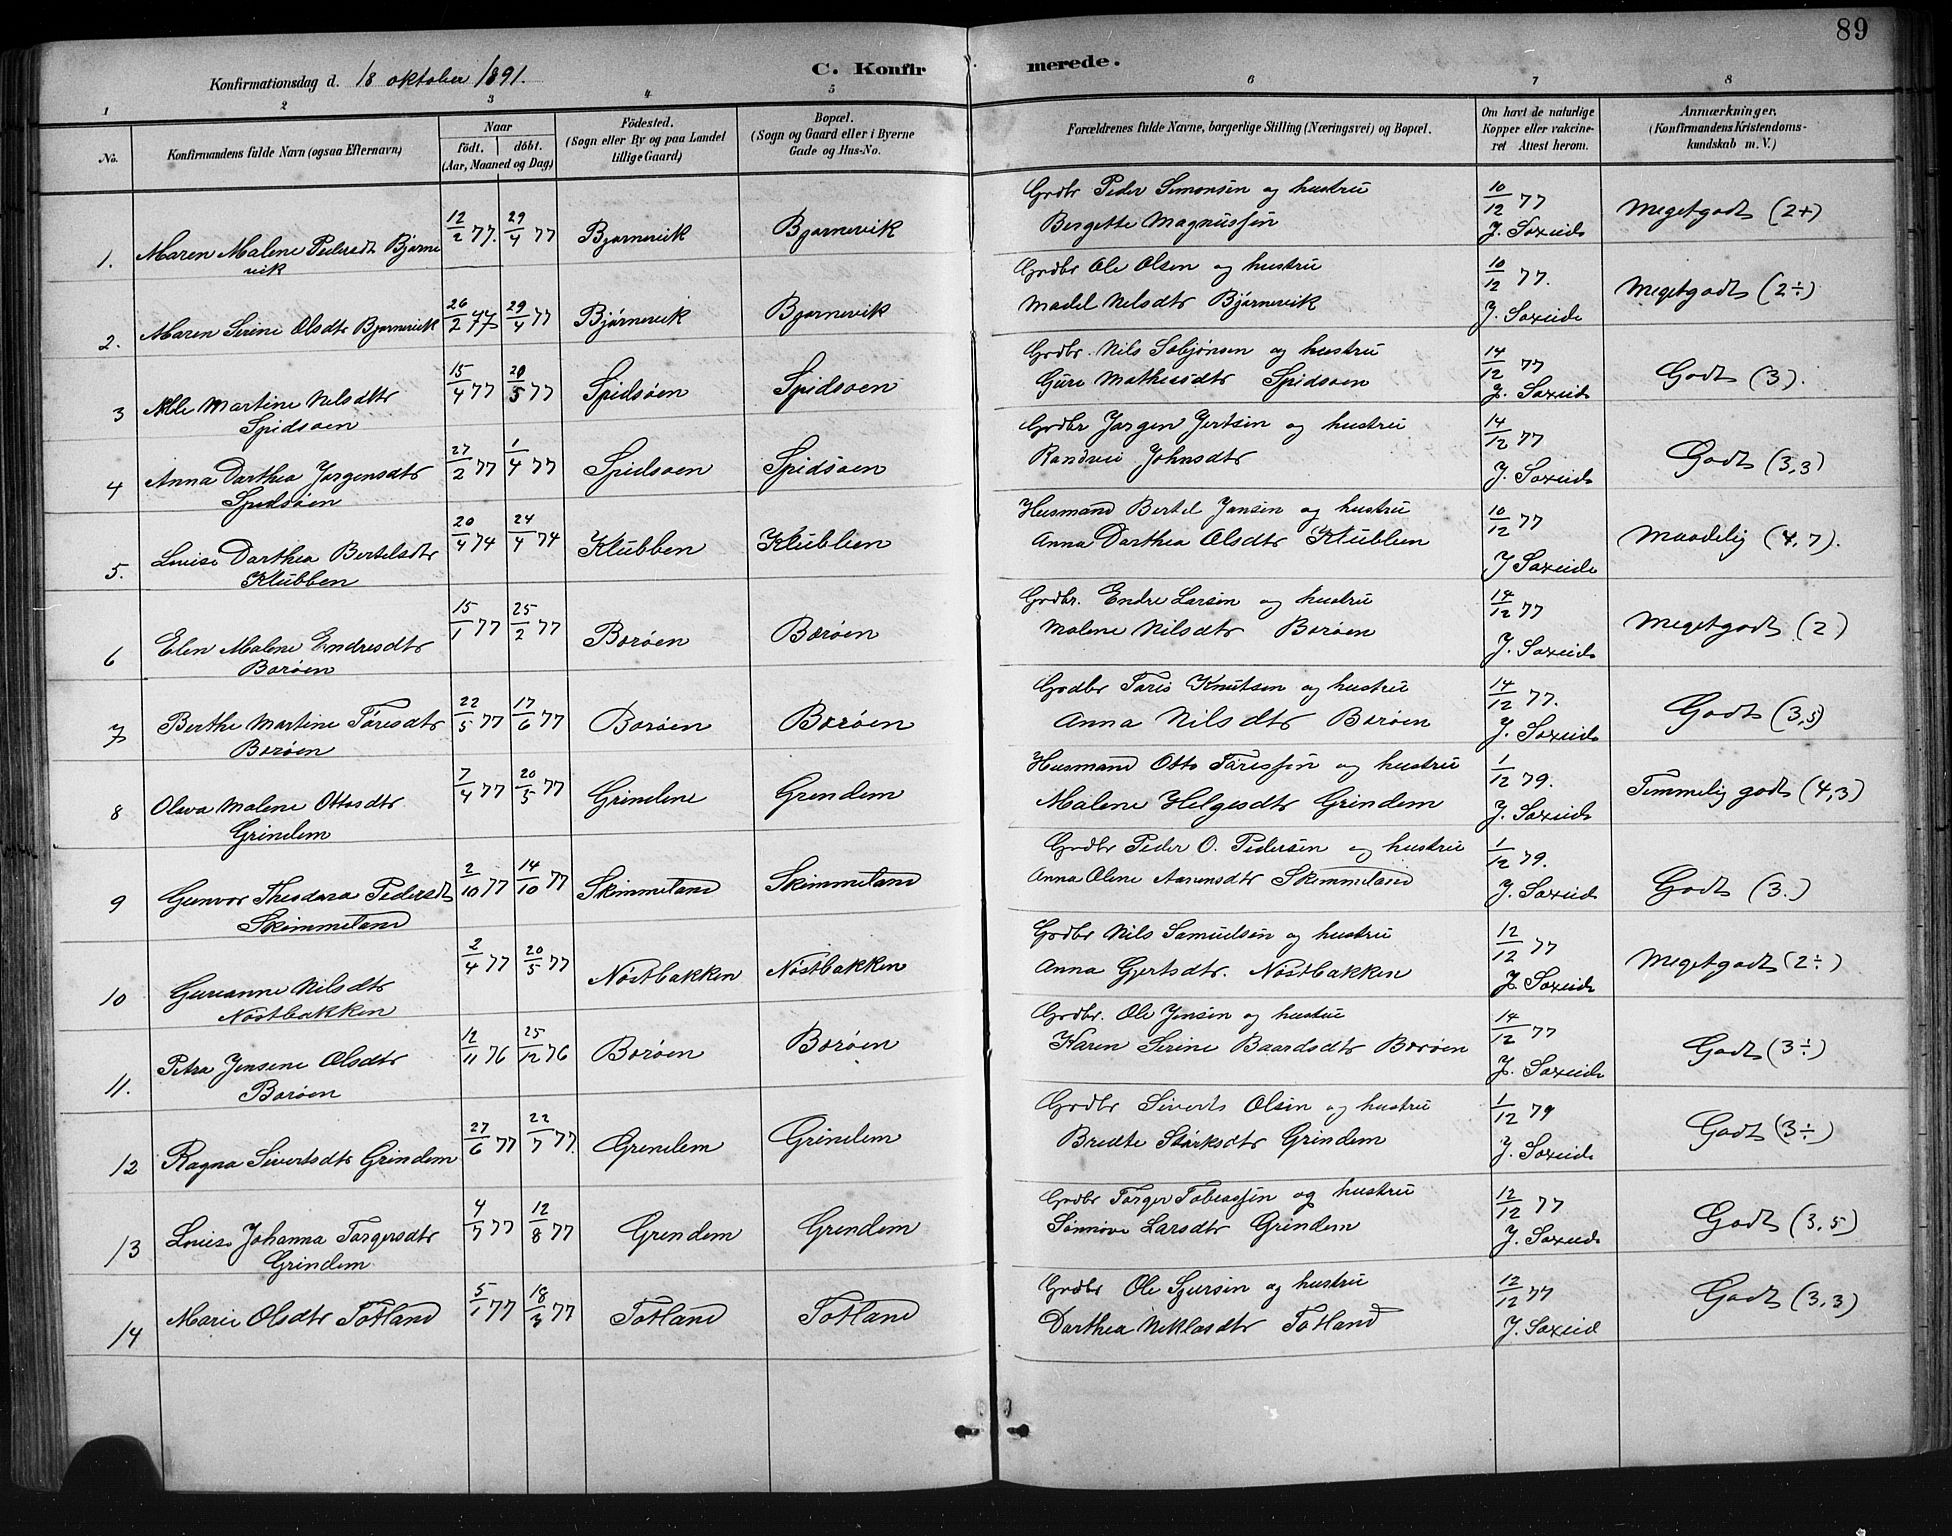 89
Konfirmationsdag d. 18 oktober 1891.
C. Konfirmerede.
1 2 3 4 5 6 7 8
No. Konfirmandens fulde Navn (ogsaa Efternavn)
Naar
födt. döbt.
(Aar, Maaned og Dag)
Födested.
(Sogn eller By og paa Landet
tillige Gaard)
Bopæl.
(Sogn og Gaard eller i Byerne
Gade og Hus-No.
Forældrenes fulde Navne, borgerlige Stilling (Næringsvei) og Bopæl.
Om havt de naturlige
Kopper eller vakcine-
ret Attest herom.
Anmærkninger.
(Konfirmandens Kristendoms-
kundskab m.V.)
1. Maren Malene Pedersdt Bjørne
vik
12/2 77. 29/4 77 Bjørnevik Bjørnevik
Grdbr Peder Simonsen og hustru
Bergette Magnussen
10/12 77
J. Saxeide
Megetgodt (2+)
2. Maren Serine Olsdtr Bjørnevik
26/2 77 29/4 77 Bjørnevik Bjørnevik
Grdbr Ole Olsen og hustru
Madel Nilsdtr Bjørnevik
10/12 77.
J. Saxeide
Megetgodt (2÷)
3 Alle Martine Nilsdtr
Spidsøen
15/4 77 20/5 77 Spidsøen Spidsøen
Grdbr. Nils Sebjønsen og hustru
Guro Mathiasdtr Spidsøen
14/12 77
J. Saxeide
Godt (3).
4 Anna Darthea Jørgensdtr
Spidsøen
27/2 77 1/4 77 Spidsøen Spidsøen
Grdbr Jørgen Jertsen og hustru
Randvei Johnsdtr
14/12 77
J. Saxeide
Godt (3,3)
5. Louise Darthea Bertelsdtr
Klubben
20/4 74 24/4 74 Klubben Klubben
Husmand Bertel Jansen og hustru
Anna Darthea Olsdtr Klubben
10/12 77
J Saxeide
Maadelig (4,7).
6 Elen Malene Endresdtr
Borøen
15/1 77 25/2 77 Borøen Borøen
Grdbr. Endre Larsen og hustru
Malene Nilsdtr Borøen
14/12 77
J. Saxeide
Megetgodt (2)
7 Berthe Martine Tøresdtr
Borøen
22/5 77 17/6 77 Borøen Borøen
Grdbr Tøres Knutsen og hustru
Anna Nilsdtr Borøen
14/12 77.
J. Saxeide
Godt (3,5)
8 Olava Malene Ottosdtr
Grindem
7/4 77 20/5 77 Grindem Grindem
Husmand Otto Tøressen og hustru
Malene Helgesdtr Grindem
1/12 79.
J. Saxeide
Temmelig godt (4,3)
9 Gunvor Theodora Pedersdt
Skimmeland
2/10 77 14/10 77 Skimmeland Skimmeland
Grdbr Peder O. Pedersen og hustru
Anna Oline Aanensdtr Skimmeland
1/12 79.
J. Saxeide
Godt (3.)
10 Gurianne Nilsdtr
Nøstbakken
2/4 77 20/5 77 Nøstbakken Nøstbakken
Grdbr Nils Samuelsen og hustru
Anna Gjertsdtr. Nøstbakken
12/12 77
J. Saxeide
Megetgodt (2÷)
11. Petra Jensene Olsdtr
Borøen
12/11 76 25/12 76 Borøen Borøen
Grdbr. Ole Jensen og hustru
Karen Serine Baardsdtr Borøen
14/12 77
J. Saxeide
Godt (3÷)
12 Ragna Sivertsdtr Grindem
27/6 77 22/7 77. Grindem Grindem
Grdbr Siverts Olsen og hustru
Bredte Størksdtr Grindem
1/12 79
J. Saxeide
Godt (3÷)
13 Louise Johanna Torgersdtr
Grindem
4/7 77 12/8 77 Grindem Grindem
Grdbr Torger Tobiassen og hustru
Sønnove Larsdtr Grindem
12/12 77
J. Saxeide
Godt (3,5)
14 Marie Olsdtr Totland
5/1 77 18/3 77 Totland Totland
Grdbr Ole Sjursen og hustru
Darthea Niklasdtr Totland
12/12 77
J. Saxeid
Godt (3,3)